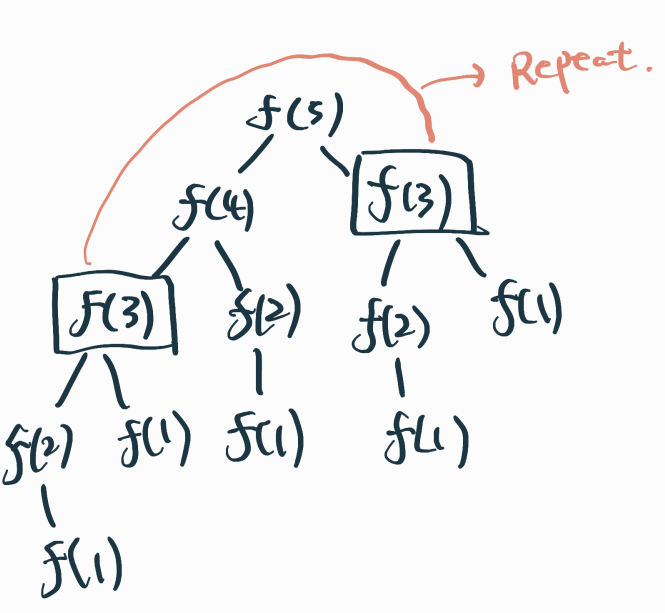 Repeat.
f(5)
f(4) f(3)
f(3) f(2) f(2) f(1)
f(2) f(1) f(1) f(1)
f(1)